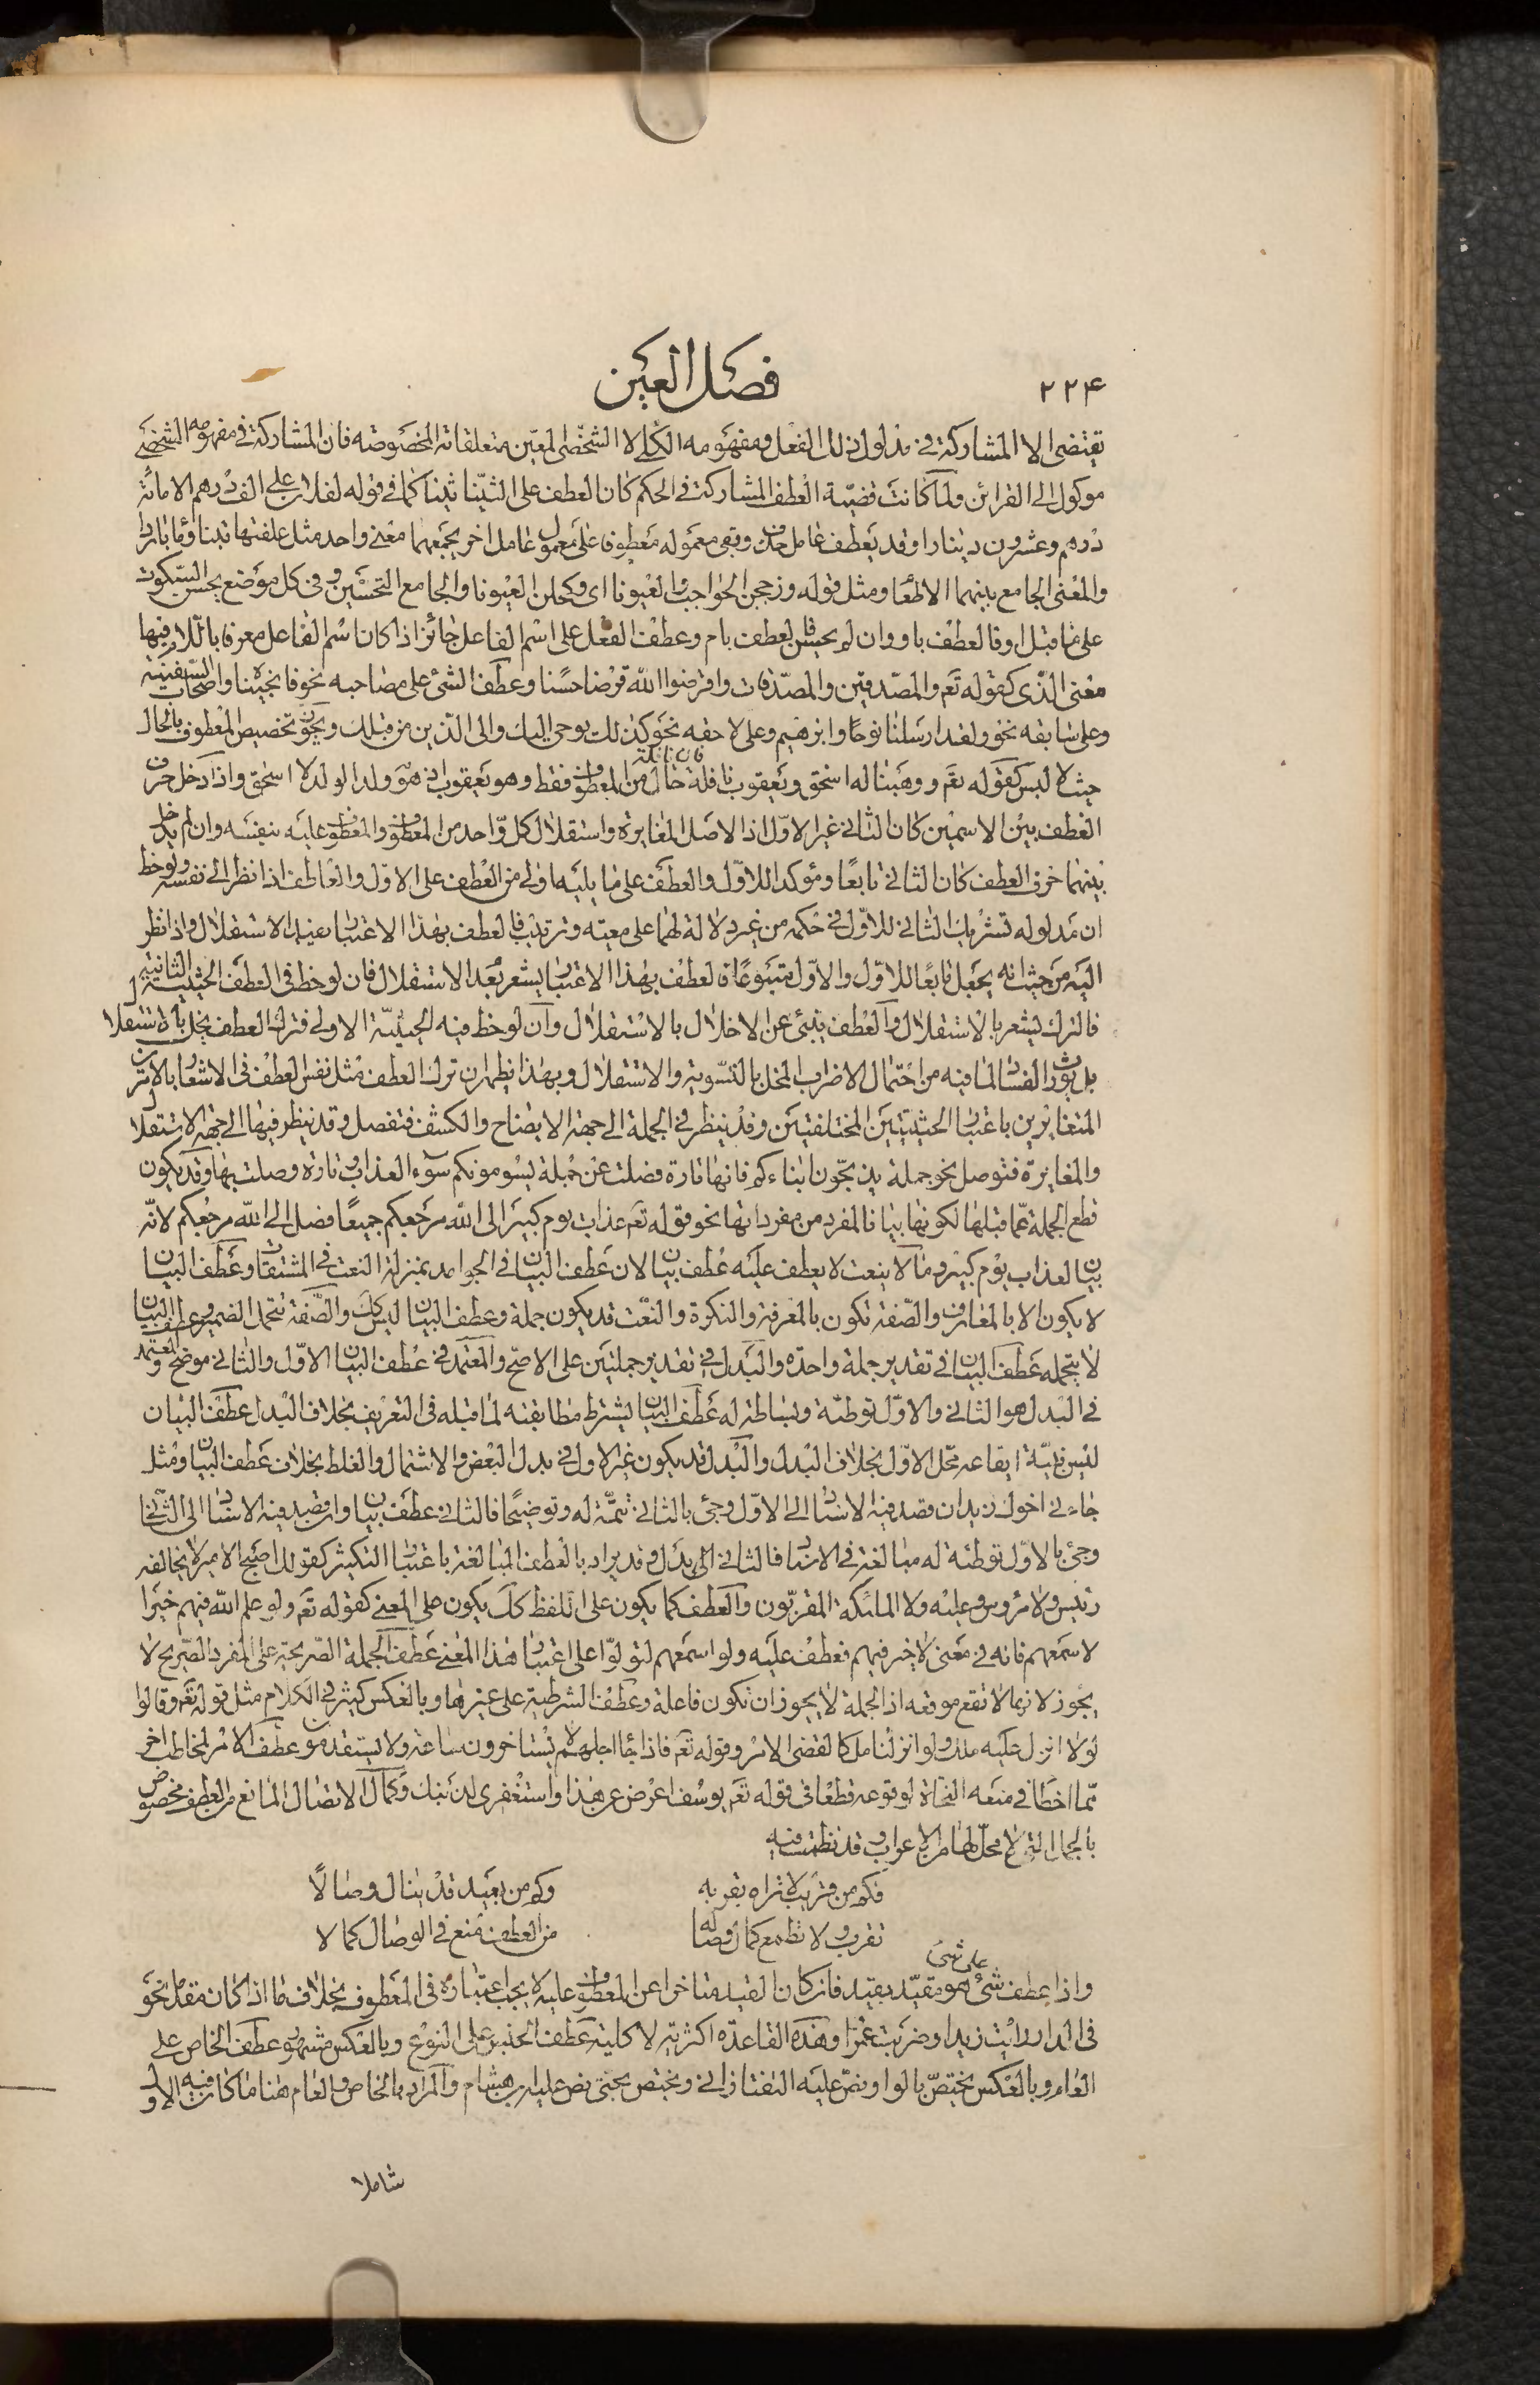 ۲۲۴
فصل العين
يقتضى الا المشاركة فى مدلول ذلك الفعل ومفهومه الكلى لا الشخصى المعين متعلقاته المخصوصة فان المشاركة فى مفهومه الشخصى
موكول الى القرائن ولما كانت قضية العطف المشاركة فى الحكم كان العطف على الثنيا ثنيا كما فى قوله لفلان على الف درهم الا مائة
درهم وعشرون دينارا وقد يعطف عامل حذف وبقى معموله معطوفا على معمول عامل اخر يجمعهما معنى واحد مثل علفتها تبنا وماء باردا
والمعنى الجامع بينهما الاطعام ومثل قوله وزججن الحواجب والعيونا اى وكحلن العيونا والجامع التحسين وفى كل موضع يحسن السكوت
على ما قبل او فالعطف باو وان لم يحسن فالعطف بام وعطف الفعل على اسم الفاعل جائز اذا كان اسم الفاعل معرفا باللام فيها
معنى الذى كقوله تعم والمصدقين والمصدقات واقرضوا الله قرضا حسنا وعطف الشئ على مصاحبه نحو فانجيناه واصحاب السفينة
وعلى سابقه نحو ولقد ارسلنا نوحا وابرهيم وعلى لاحقه نحو كذلك يوحى اليك والى الذين من قبلك ويجوز تخصيص المعطوف بالحال
حيث لا لبس كقوله تعم ووهبنا له اسحق ويعقوب نافلة فان نافلة حال من المعطوف فقط وهو يعقوب اذ هو ولد الولد لا اسحق واذا دخل حرف
العطف بين الاسمين كان الثانى غير الاول اذ الاصل المغايرة واستقلال كل واحد من المعطوف والمعطوف عليه بنفسه وان لم يدخل
بينهما حرف العطف كان الثانى تابعا ومؤكدا للاول والعطف على ما يليه اولى من العطف على الاول والعاطف اذا نظر الى نفسه ولوحظ
ان مدلوله تشريك الثانى للاول فى حكمه من غير دلالة لهما على معية وترتيب فالعطف بهذا الاعتبار يفيد الاستقلال واذا نظر
اليه من حيث انه يجعل تابعا للاول والاول متبوعا فالعطف بهذا الاعتبار يشعر بعدم الاستقلال فان لوحظ فى العطف الحيثية الثانية
فالترك يشعر بالاستقلال والعطف ينبئ عن الاخلال بالاستقلال وان لوحظ فيه الحيثية الاولى فترك العطف يخل بالاستقلال
بل يورث الفساد لما فيه من احتمال الاضراب المخل بالتسوية والاستقلال وبهذا يظهر ان ترك العطف مثل نفس العطف فى الاشعار بالامرين
المتغايرين باعتبار الحيثيتين المختلفتين وقد ينظر فى الجملة الى جهة الايضاح والكشف فتفصل وقد ينظر فيها الى جهة الاستقلال
والمغايرة فتوصل نحو جملة يذبحون ابناءكم فانها تارة فصلت عن جملة يسومونكم سوء العذاب وتارة وصلت بها وقد يكون
قطع الجملة عما قبلها لكونها بيانا لمفرد من مفرداتها نحو قوله تعم عذاب يوم كبير الى الله مرجعكم جميعا فصل الى الله مرجعكم لانه
بيان لعذاب يوم كبير وما لا ينعت لا يعطف عليه عطف بيان لان عطف البيان فى الجوامد بمنزلة النعت فى المشتقات وعطف البيان
لا يكون الا بالمعارف والصفة تكون بالمعرفة والنكرة والنعت قد يكون جملة وعطف البيان ليس كك والصفة تتحمل الضمير وعطف البيان
لا يتحمله عطف البيان فى تقدير جملة واحدة والبدل فى تقدير جملتين على الاصح والمعتمد فى عطف البيان الاول والثانى موضح والمعتمد
فى البدل هو الثانى والاول توطئة وبساطة له عطف البيان يشترط مطابقته لما قبله فى التعريف بخلاف البدل عطف البيان
ليس بنية ايقاعه محل الاول بخلاف البدل والبدل قد يكون غير الاول فى بدل البعض والاشتمال والغلط بخلاف عطف البيان ومثل
جاءنى اخوك زيد ان قصد فيه الاسناد الى الاول وجئ بالثانى تتمة له وتوضيحا فالثانى عطف بيان وان قصد فيه الاسناد الى الثانى
وجئ بالاول توطئة له مبالغة فى الاسناد فالثانى بدل وقد يراد بالعطف المبالغة باعتبار التكثير كقولك اصبح الامير لا يخالفه
رئيس ولا مرؤس وعليه ولا الملئكة المقربون والعطف كما يكون على اللفظ كك يكون على المعنى كقوله تعم ولو علم الله فيهم خيرا
لاسمعهم فانه فى معنى لا خير فيهم فعطف عليه ولو اسمعهم لتولوا على اعتبار هذا المعنى عطف الجملة الصريحة على المفرد الصريح لا
يجوز لانها لا تقع موقعه اذ الجملة لا يجوز ان تكون فاعلة وعطف الشرطية على غيرها وبالعكس كثير فى الكلام مثل قوله تعم وقالوا
لولا انزل عليه ملك ولو انزلنا ملكا لقضى الامر وقوله تعم فاذا جاء اجلهم لا يستاخرون ساعة ولا يستقدمون عطف الامر لمخاطب اخر
مما اخطا فى منعه النحاة لوقوعه قطعا فى قوله تعم يوسف اعرض عن هذا واستغفرى لذنبك وكمال الاتصال المانع من العطف مخصوص
بالجمل التى لا محل لها من الاعراب وقد نظمت فيه
فكم من قريب لا تراه بقربه   وكم من بعيد قد ينال وصالا
تقرب ولا تطمع كمال وصاله   من العطف منع فى الوصال كمالا
واذا عطف شئ على شئ هو مقيد بقيد فان كان القيد متاخرا عن المعطوف عليه لا يجب اعتباره فى المعطوف بخلاف ما اذا كان مقدما نحو
فى الدار رايت زيدا وضربت عمرا وهذه القاعدة اكثرية لا كلية عطف الجنس على النوع وبالعكس مشهور وعطف الخاص على
العام وبالعكس يختص بالواو نص عليه التفتازانى ويختص بحتى نص عليه ابن هشام والمراد بالخاص والعام هنا ما كان فيه الاول
شاملا